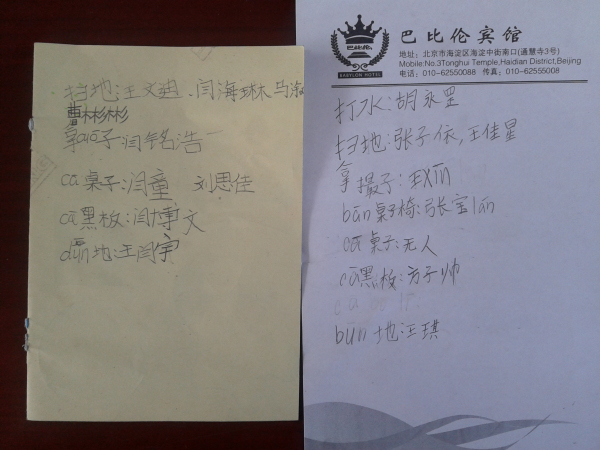 扫地:王文迪.闫海琳.马
曹彬彬
拿 子闫铭浩
cā桌子:闫童 刘思佳
cā黑板:闫博文
dūn地:王闫宇
巴比伦宾馆
BABYLON HOTEL
地址:北京市海淀区海淀中街南口(通慧寺3号)
Mobile:No.3Tonghui Temple,Haidian District,Beijing
电话:010-62550088 传真:010-62555008
打水:胡永罡
扫地:张子依,王佳星
拿撮子:王xīn
bān桌子椅:张宝lán
cā桌子:无人
cā黑板:方子帅
地:王琪